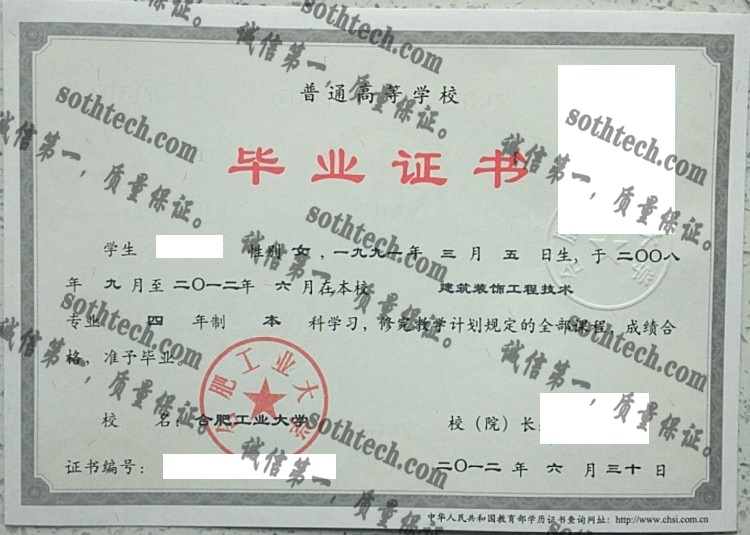 普通高等学校
毕业证书
学生 性别 女，一九九一年 三 月 五 日生，于 二〇〇八
年 九 月至 二〇一二年 六 月在本校 建筑装饰工程技术
专业 四 年制 本 科学习，修完教学计划规定的全部课程，成绩合
格，准予毕业。
合肥工业大学
校 名：合肥工业大学 校（院）长：
证书编号： 二〇一二 年 六 月 三十 日
中华人民共和国教育部学历证书查询网址：http://www.chsi.com.cn
sothtech.com
诚信第一，质量保证。
sothtech.com
诚信第一，质量保证。
sothtech.com
诚信第一，质量保证。
sothtech.com
诚信第一，质量保证。
sothtech.com
诚信第一，质量保证。
sothtech.com
诚信第一，质量保证。